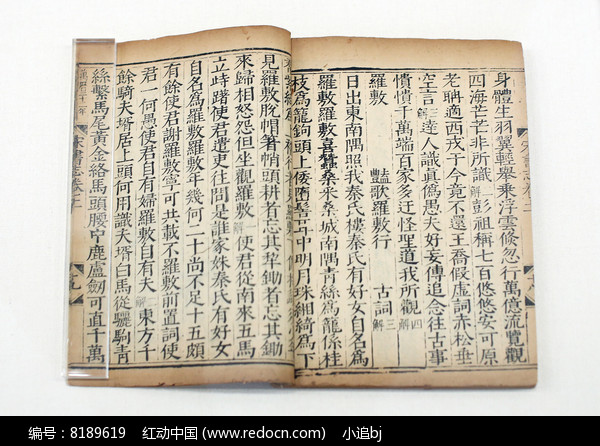 身體生羽翼輕舉乘浮雲倏忽行萬億流覽觀
四海芒芒非所識解彭祖稱七百悠悠安可原
老聃適西戎于今竟不還王喬假虛詞赤松垂
空言三解達人識真僞愚夫好妄傳追念往古事
憒憒千萬端百家多迂怪聖道我所觀四解
羅敷 豔歌羅敷行 古詞三解
日出東南隅照我秦氏樓秦氏有好女自名為
羅敷羅敷喜蠶桑采桑城南隅青絲為籠係桂
枝為籠鉤頭上倭墮髻耳中明月珠緗綺為下
見羅敷脫帽著帩頭耕者忘其犂鋤者忘其鋤
來歸相怨怒但坐觀羅敷解使君從南來五馬
立踟躇使君遣吏往問是誰家姝秦氏有好女
自名為羅敷羅敷年幾何二十尚不足十五頗
有餘使君謝羅敷寧可共載不羅敷前置詞使
君一何愚使君自有婦羅敷自有夫二解東方千
餘騎夫壻居上頭何用識夫壻白馬從驪駒青
絲繫馬尾黃金絡馬頭腰中鹿盧劒可直千萬
宋書志卷十
十九
编号：8189619 红动中国 (www.redocn.com) 小追bj